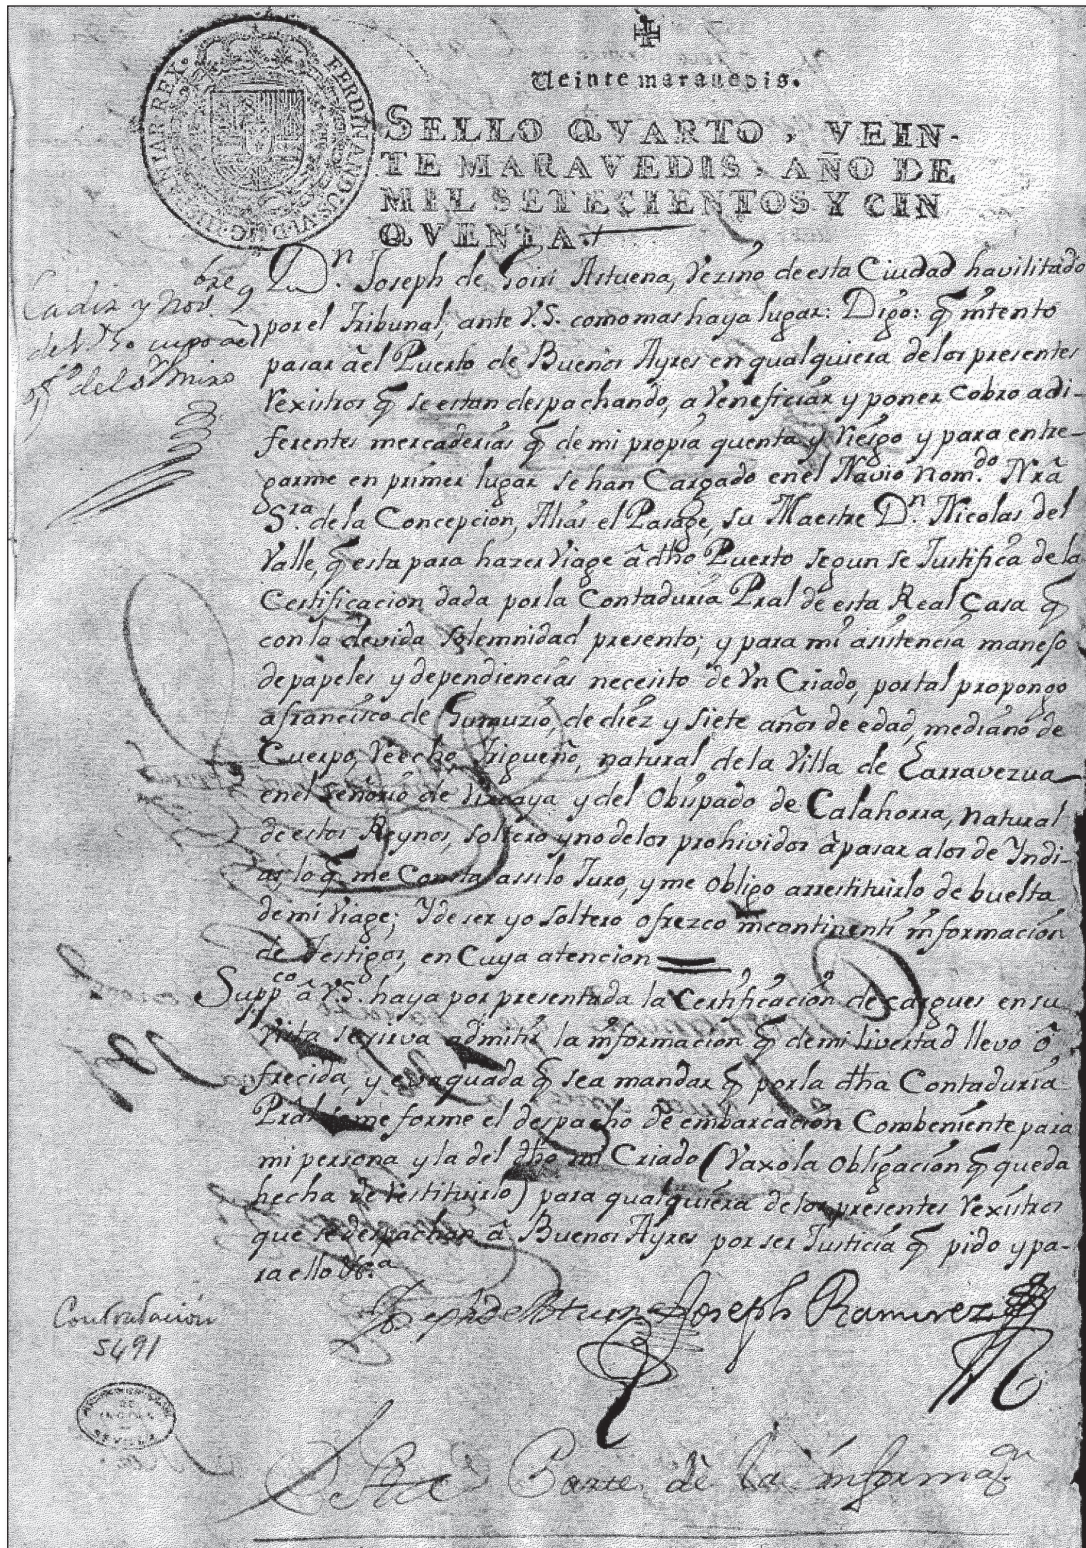 Veinte maravedis.
SELLO QVARTO, VEIN-
TE MARAVEDIS, AÑO DE
MIL SETECIENTOS Y CIN
QVENTA.
FERDINANDUS VI D.G. HISPANIAR REX
Cadiz y Nov.bre 9
Dn. Joseph de Goiri Astuena, Vezino de esta Ciudad havilitado
por el Tribunal, ante V.S. como mas haya lugar: Digo: q̃ intento
pasar a el Puerto de Buenos Ayres en qualquiera de los presentes
rexistros q̃ se estan despachando, a veneficiar y poner cobro a di-
ferentes mercaderias q̃ de mi propia quenta y riesgo y para entre-
garme en primer lugar se han Cargado en el Navio nom.do Nrã
S.ra de la Concepcion, Alias el Pasage, su Maestre Dn. Nicolas del
Valle, q̃ esta para hazer viage â dho Puerto segun se Justifica de la
Certificacion dada por la Contaduria Pral de esta Real Casa q̃
con la devida solemnidad presento; y para mi asistencia manejo
de papeles y dependiencias necesito de Vn Criado, por tal propongo
a francisco de Gumuzio, de diez y siete años de edad, mediano de
Cuerpo, Trigueño, natural de la Villa de Larravezua
en el señorio de Vizcaya y del Obispado de Calahorra, natural
de estos Reynos, soltero y no de los prohividos â pasar a los de Yndi-
as, lo q̃ me Consta assi lo Juro, y me obligo a rrestituirlo de buelta
de mi Viage; Y de ser yo soltero ofrezco incontinenti informacion
de testigos, en Cuya atencion
Supp.co â V.S. haya por presentada la Certificacion de cargues en su
vista se sirva admitir la informacion q̃ de mi livertad llevo ô
frecida, y evaquada q̃ sea mandar q̃ por la dha Contaduria
Pral se me forme el despacho de embarcacion Combeniente para
mi persona y la del dho mi Criado (Vaxo la obligacion q̃ queda
hecha de restituirlo) para qualquiera de los presentes rexistros
que se despachan â Buenos Ayres por ser Justicia q̃ pido y pa-
ra ello &.a
Joseph Ramirez
Contratación
5491
Parte de la informaon